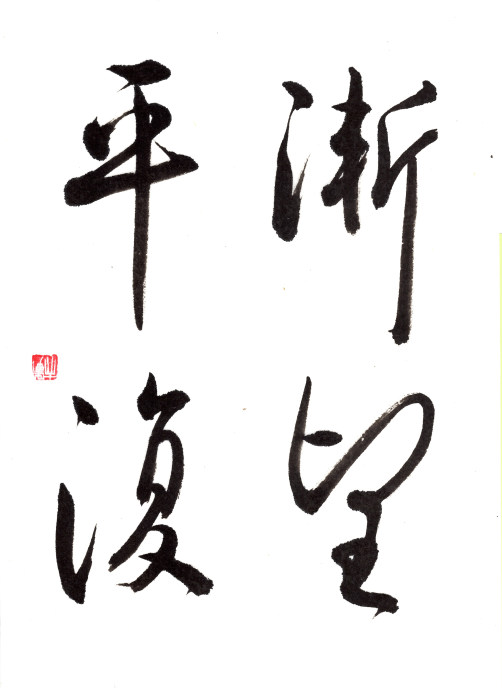 漸望
平復